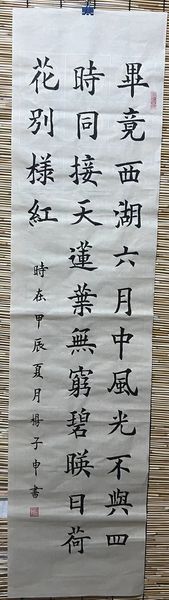 畢竟西湖六月中風光不與四
時同接天蓮葉無窮碧暎日荷
花別樣紅
時在甲辰夏月梅子申書